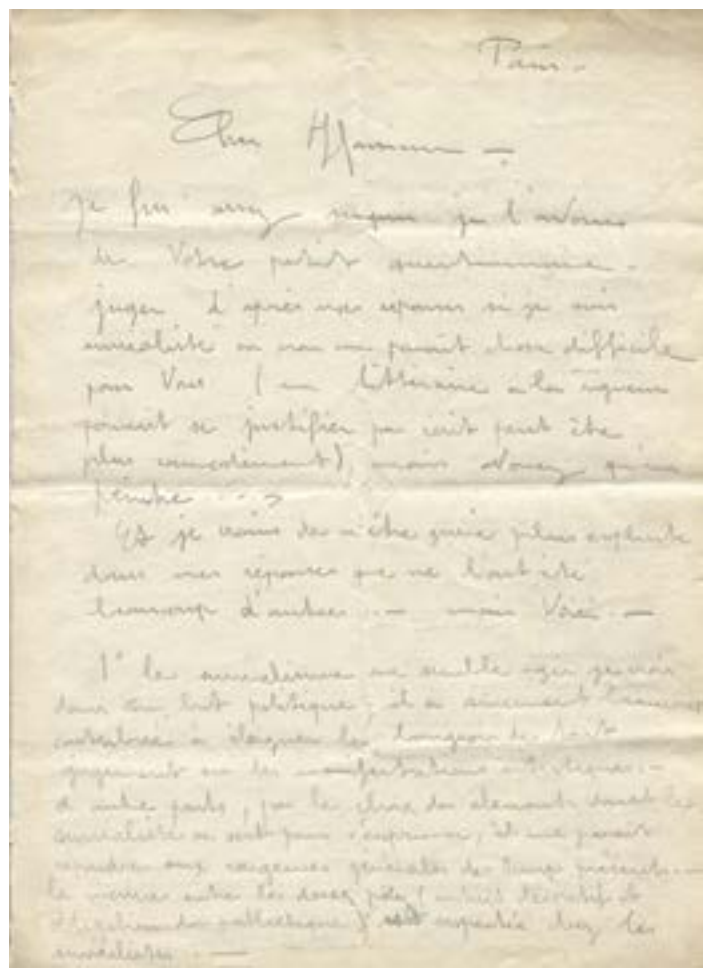 Paris -
Cher Monsieur -
Je fus assez je l'avoue
de Votre petit questionnaire -
juger d'après mes réponses si je suis
surréaliste ou non me parait chose difficile
pour Vous (un littéraire à la rigueur
pouvait se justifier par écrit peut être
plus ), mais
peintre....
Et je crains de n'être guère plus explicite
dans mes réponses que ne l'ont été
beaucoup d'autres.. - mais Voici. -
1° le surréalisme me semble
dans un but politique, il a
contribué à éloigner les de tout
jugement sur les manifestations artistiques. -
d'autre part, par le choix des éléments dont les
surréalistes se sont pour s'exprimer, il me parait
répondre aux exigences générales des temps présents. -
la entre les deux pôles (
pathétique) est respectée chez les
surréalistes. -